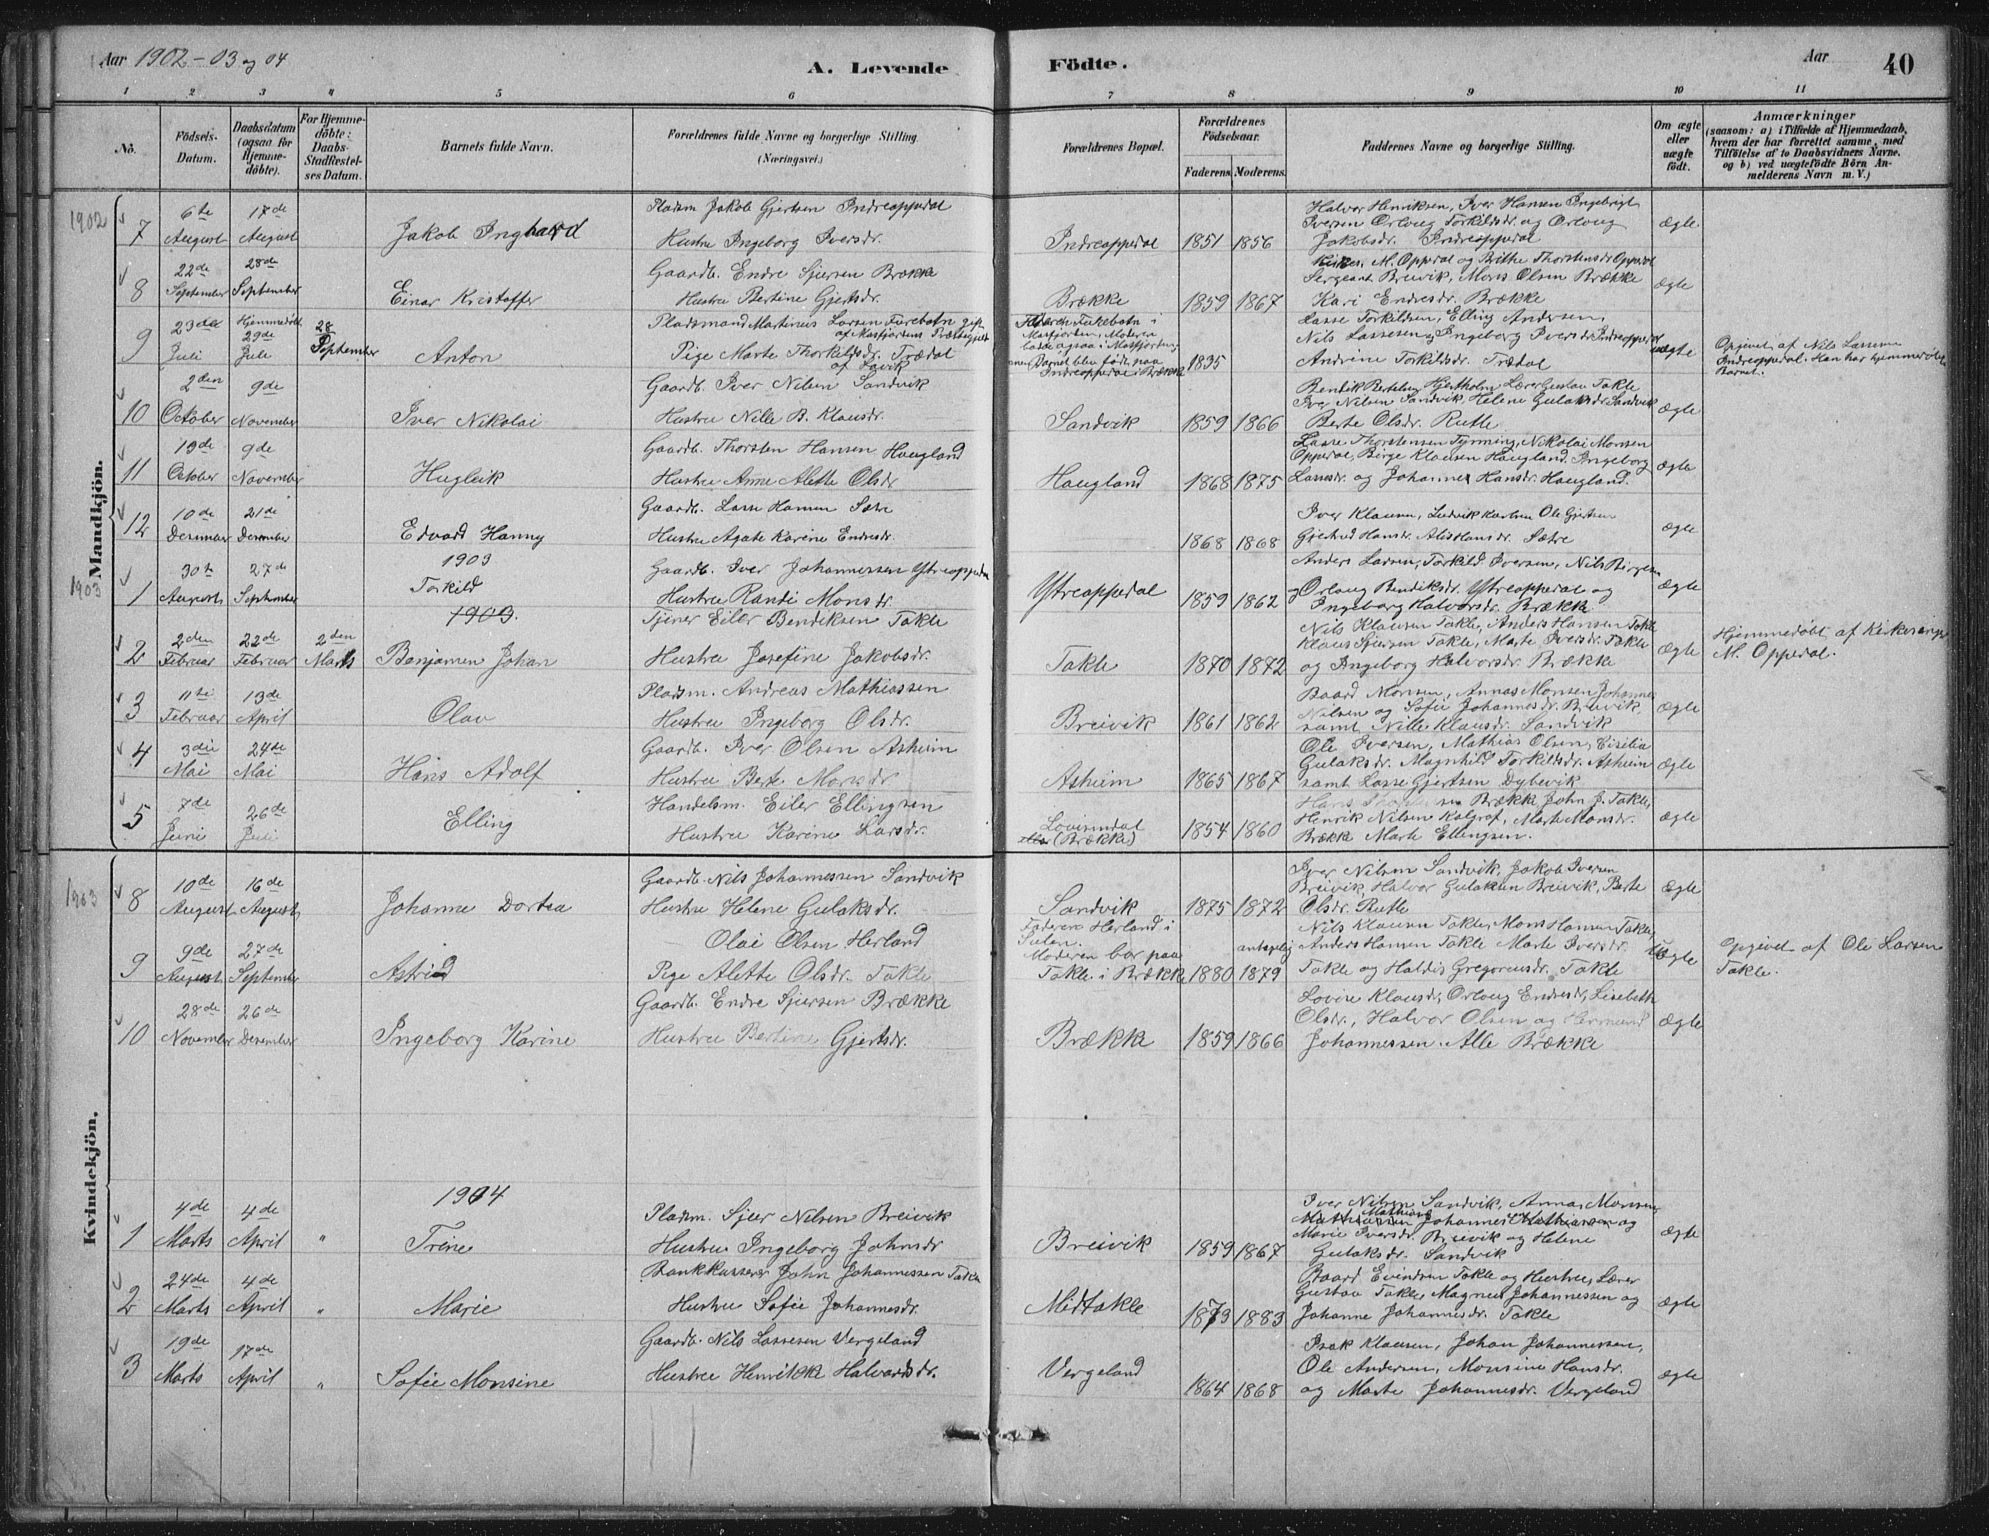 Aar 1902-03 og 04
A. Levende Födte.
Aar 40
1 2 3 4 5 6 7 8 9 10 11
No.
Födsels-Datum.
Daabsdatum (ogsaa for Hjemme-döbte).
For Hjemme-döbte: Daabs-Stadfæstel-ses Datum.
Barnets fulde Navn.
Forældrenes fulde Navne og borgerlige Stilling. (Næringsvei.)
Forældrenes Bopæl.
Forældrenes Födselsaar.
Faderens. Moderens.
Faddernes Navne og borgerlige Stilling.
Om ægte eller uægte födt.
Anmærkninger
(saasom: a) i Tilfælde af Hjemmedaab, hvem der har forrettet samme, med Tilföielse af to Daabsvidners Navne, og b) ved uægtefödte Börn An-melderens Navn m. V.)
Mandkjön.
1902
7 6te August 17de August Jakob Ingvard
Pladsm Jakob Gjertsen Indreoppedal
Hustru Ingeborg Iversdr.
Indreoppedal 1851 1856
Halvor Henriksen, Iver Hansen Ingebrigt
Iversen Orloug Torkildsdr og Orloug
Jakobsdr. Indreoppedal
ægte
8 22de September 28de September Einar Kristoffer
Gaardb. Endre Sjursen Brække
Hustru Bertine Gjertsdr.
Brække 1859 1867
M. Oppedal og Brithe Thorstensdr Oppedal
Sergeant Breivik, Mons Olsen Brække
Kari Endresdr. Brække
ægte
9 23de Juli Hjemmedöbt 29de Juli 28 September Anton
Pladsmand Martinus Larsen Furebotn gift
af Masfjordens Præstegjeld
Pige Marte Thorkildsdr. Trædal
af Lavik
Indreoppedal i Brække 1835
Lasse Torkildsen, Elling Andersen,
Nils Lassesen, Ingeborg Iversdr. Indreoppedal
Andrine Torkildsdr. Trædal
uægte
Opgivet af Nils Lassesen
Indreoppedal. Han har hjemmedöbt
Barnet.
10 2den October 9de November Iver Nikolai
Gaardb. Iver Nilsen Sandvik
Hustru Nille B. Klausdr.
Sandvik 1859 1866
Bendik Bertelsen Hjertholm Lærer Gustav Takle
Iver Nilsen Sandvik, Helene Gulaksdr. Sandvik
Berte Olsdr. Rutle
ægte
11 19de October 9de November Hugleik
Gaardb. Thorsten Hansen Haugland
Hustru Anne Alette Olsdr.
Haugland 1868 1875
Lasse Thorstensen Tynning, Nikolai Monsen
Oppedal, Börge Klausen Haugland, Ingeborg
Lassesdr. og Johanne Hansdr. Haugland.
ægte
12 10de Desember 21de Desember Edvard Hanny
Gaardb. Lasse Hansen Sætre
Hustru Agate Karine Endresdr.
1868 1868
Iver Klausen, Ludvik Karlsen Ole Gjertsen
Gjertrud Hansdr. Alis Hansdr. Sætre
ægte
1903
1903
1 30te August 27de September Torkild
Gaardb. Iver Johannessen Ytreoppedal
Hustru Randi Monsdr.
Ytreoppedal 1859 1862
Anders Larsen, Torkild Iversen, Nils Börgesen
og Orloug Bendiksdr. Ytreoppedal og
Ingeborg Halvorsdr. Brække
ægte
1903.
2 2den Februar 22de Februar 2den Marts Benjamen Johan
Tjener Eiler Bendiksen Takle
Hustru Josefine Jakobsdr.
Takle 1870 1872
Nils Klausen Takle, Anders Hansen Takle
Klaus Sjursen Takle, Marte Iversdr. Takle
og Ingeborg Halvorsdr. Brække
ægte
Hjemmedöbt af Kirkesanger
M. Oppedal.
3 11te Februar 13de April Olav
Pladsm. Andreas Mathiassen
Hustru Ingeborg Olsdr.
Breivik 1861 1862
Baard Monsen, Annas Monsen Johannes
Nilsen og Sofie Johannesdr. Breivik
samt Nille Klausdr. Sandvik
ægte
4 3die Mai 24de Mai Hans Adolf
Gaardb. Iver Olsen Asheim
Hustru Berte Monsdr.
Asheim 1865 1867
Ole Iversen, Mathias Olsen, Cisilia
Gulaksdr. Magnhild Torkildsdr. Asheim
samt Lasse Gjertsen Dybevik
ægte
5 7de Juni 26de Juli Elling
Handelsm. Eiler Ellingsen
Hustru Karine Larsdr.
Lovisendal
(Brække) 1854 1860
Brække, John J. Takle,
Henrik Nilsen Kalgraf, Marte Monsdr.
Brække Marte Ellingsen.
ægte
Kvindekjön.
1903
8 10de August 16de August Johanne Dortea
Gaardb. Nils Johannessen Sandvik
Hustru Helene Gulaksdr.
Sandvik 1875 1872
Iver Nilsen Sandvik, Jakob Iversen
Breivik, Halvor Gulaksen Breivik, Berte
Olsdr. Rutle
ægte
9 9de August 27de September Astrid
Olai Olsen Herland
Pige Alette Olsdr. Takle
Faderen Herland i
Sulen.
Moderen bor paa
Takle i Brække 1880 antagelig 1879
Nils Klausen Takle, Mons Hansen Takle,
Anders Hansen Takle Marte Iversdr.
Takle og Haldis Gregoriusdr. Takle
uægte
Opgivet af Ole Larsen
Takle.
10 28de November 26de Desember Ingeborg Karine
Gaardb. Endre Sjursen Brække
Hustru Bertine Gjertsdr.
Brække 1859 1866
Lovise Klausdr, Orloug Endresdr, Lisebeth
Olsdr., Halvor Olsen og Hermund
Johannessen. Alle Brække
ægte
1904
1 4de Marts 4de April " Trine
Pladsm. Sjur Nilsen Breivik
Hustru Ingeborg Johnsdr
Breivik 1859 1867
Iver Nilsen Sandvik, Annas Monsen
Mathias
Johannes Mathiassen og
Marie Iversdr. Breivik og Helene
Gulaksdr. Sandvik
ægte
2 24de Marts 4de April " Marie
Bankkasserer John Johannessen Takle
Hustru Sofie Johannesdr.
Midtakle 1879 1883
Baard Evindsen Takle og Hustru, Lærer
Gustav Takle, Magnus Johannessen og
Johanne Johannesdr. Takle
ægte
3 19de Marts 17de April " Sofie Monsine
Gaardb. Nils Lassesen Vergeland
Hustru Henrikke Halvorsdr.
Vergeland 1864 1868
Isak Klausen, Johan Johannessen,
Ole Andersen, Monsine Hansdr.
og Marte Johannesdr. Vergeland
ægte